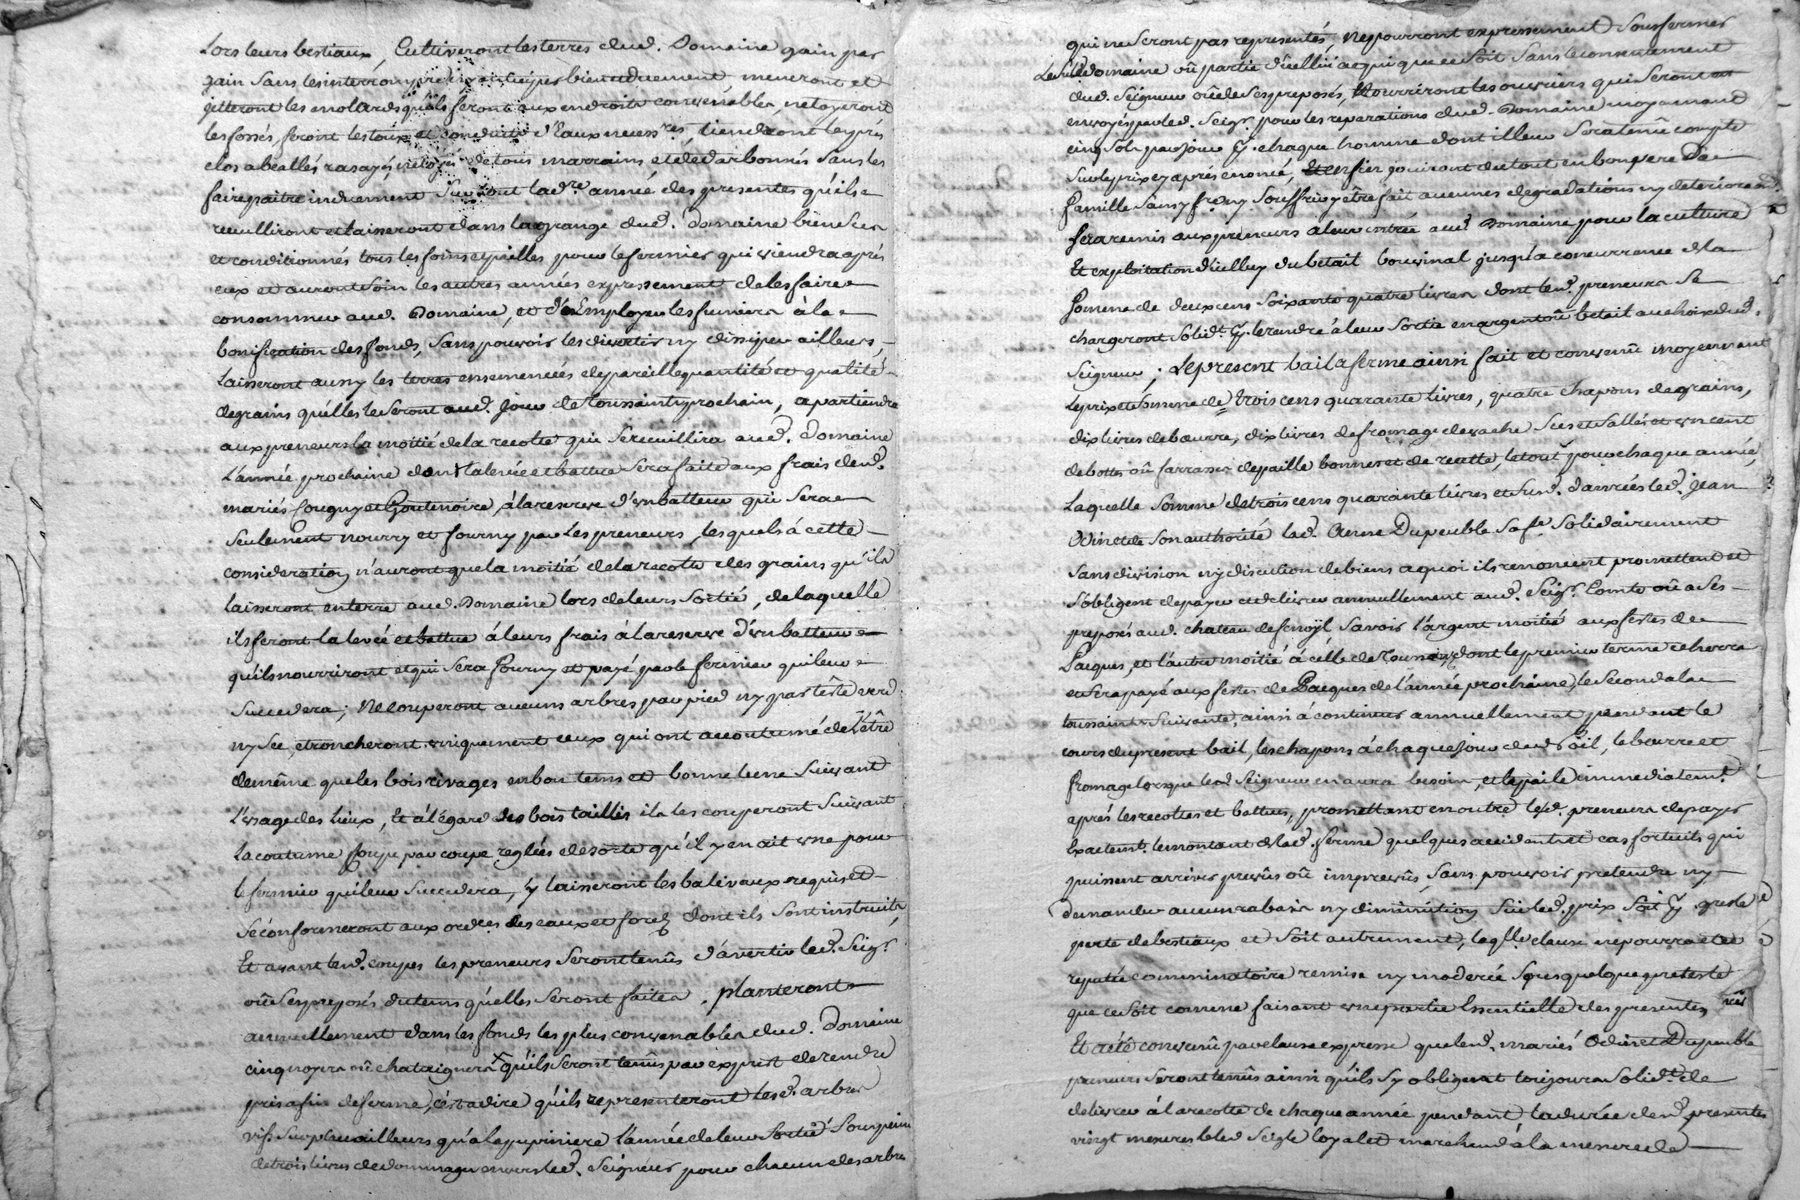 Lors leurs bestiaux, Cultiveront les terres dud. Domaine gain par
gain sans les interrompre bien et duement meneront et
jetteront les molards qu'ils feront aux endroits convenables, netoyeront
les fossés, feront les toux et conduits d'Eaux necess.res, tiendront les prés
clos abeallés rasayés netoyés de tous marrains et de darbonnés sans les
faire paitre induement surtout lad.re année des presentes qu'ils
recuilliront et laisseront dans la grange dud. Domaine bien secs
et conditionnés tous les foins et pailles pour le fermier qui viendra après
eux et auront soin les autres années expressement de les faire
consommer aud. Domaine, et d'Employer les fumiers à la
bonification des fonds, sans pouvoir les divertir ny dissiper ailleurs,
Laisseront aussy les terres ensemencées de pareille quantité et qualité
de grains qu'elles le seront aud. jour de Toussaint prochain, apartiendra
aux preneurs la moitié de la recolte qui se recuillira aud. Domaine
L'année prochaine dont la levée et battue sera faite aux frais desd.
mariés Cougny et Goutenoire, à la reserve d'un batteur qui sera
seulement nourry et fourny par Les preneurs, lesquels à cette
consideration n'auront que la moitié de la recolte des grains qu'ils
Laisseront en terre aud. Domaine lors de leurs sortie, de laquelle
ils feront la levée et battue à leurs frais à la reserve d'un batteur
qu'ils nourriront et qui sera fourny et payé par le fermier qui leur
succedera; Ne couperont aucuns arbres par pied ny par tête verd
ny sec, etroncheront uniquement ceux qui ont accoutumé de L'être
de même que les bois rivages en bon tems et bonne lune suivant
L'usage des lieux, Et à l'égard des bois taillis ils les couperont suivant
La coutume coupe par coupe reglées de sorte qu'il y en ait une pour
le fermier qui leur succedera, y laisseront les baliveaux requis et
se conformeront aux ordres des eaux et forets dont ils sont instruits,
Et avant lesd. coupes les preneurs seront tenûs d'avertir led. Seig.r
où ses preposés du tems qu'elles seront faites. planteront
annuellement dans les fonds les plus convenables dud. Domaine
cinq noyers où chataigners qu'ils seront tenûs par exprest de rendre
pris afin de ferme, c'est a dire qu'ils representeront lesd. arbres
vifs sur pied ailleurs qu'a la pepiniere l'année de leur sortie sous peine
de trois livres de dommages envers led. Seigneur pour chacun des arbres
qui ne seront pas representés, Ne pourront expressement sousfermer
Led. Domaine où partie d'icelluy à qui que ce soit sans le consentement
dud. Seigneur où de ses preposés, Nourriront les ouvriers qui seront
envoyés par led. Seig.r pour les reparations dud. Domaine moyennant
cinq sols par jour chaque homme dont il leur sera tenû compte
sur le prix cy après enoncé, Et enfin jouiront du tout en bon pere de
famille sans y fe ny souffrir y être fait aucunes degradations ny deteriora.
sera remis aux preneurs à leur entrée aud. Domaine pour la culture
Et exploitation d'icelluy du betail bouvinal jusqu'a concurrence de la
somme de deux cens soixante quatre livres dont lesd. preneurs se
chargeront solid.t le rendre à leur sortie en argent où betail au choix dud.
Seigneur; Le present bail a ferme ainsi fait et convenû moyennant
Le prix et somme de trois cens quarante livres, quatre chapons de grains,
dix livres de beurre, dix livres de fromage de vache sec et sallés et un cent
de bottes où farrasses de paille bonnes et de recette, le tout pour chaque année,
Laquelle somme de trois cens quarante livres et susd. danrées led. Jean
Odin et de son authorité lad. Anne Dupeuble sa fe solidairement
sans division ny discution de biens a quoi ils renoncent promettent et
s'obligent de payer et delivrer annuellement aud. Seig.r Comte où à ses
preposés aud. château de fenoÿl savoir L'argent moitié aux fêtes de
Paques, et l'autre moitié à celle de Toussaint dont le premier terme echerra
et sera payé aux fêtes de Pâques de l'année prochaine, le second à la
toussaint suivante, ainsi à continuer annuellement pendant le
cours du present bail, les chapons à chaque jour de noël, le beurre et
fromage lorsque led. Seigneur en aura besoin, et la paile immediatem.t
après les recoltes et battues, promettant en outre lesd. preneurs de payer
Exactem.t le montant de lad. ferme quelques accidents et cas fortuits qui
puissent arriver prevûs où imprevûs, sans pouvoir pretendre ny
demander aucun rabais ny diminution sur led. prix soit par greles
perte de bestiaux et soit autrement, laqlle clause ne pourra etre
reputée comminatoire remise ny moderée sous quelque pretexte
que ce soit comme faisant une partie Essentielle des presentes
Et a été convenû par clause expresse que lesd. mariés Odin et Dupeuble
preneurs seront tenûs ainsi qu'ils s'y obligent toujours solid.t de
delivrer à la recolte de chaque année pendant la durée desd. presentes
vingt mesures bled seigle loyal et marchand à la mesure de